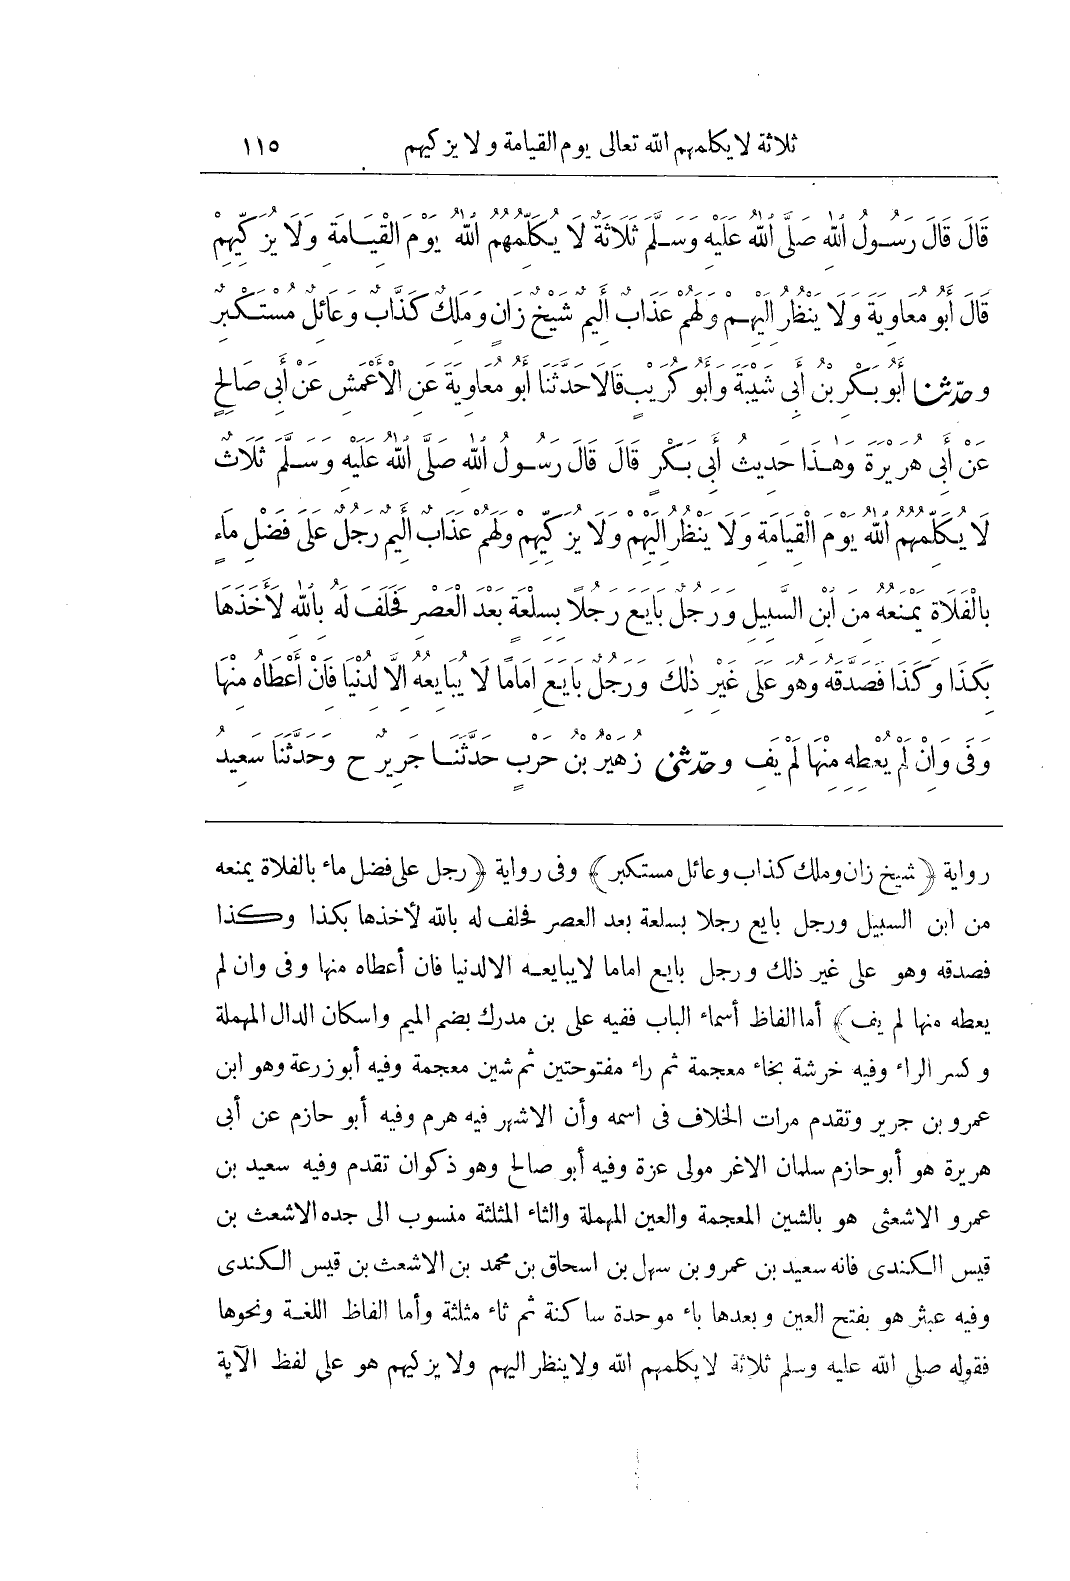 ثلاثة لا يكلمهم الله تعالى يوم القيامة ولا يزكيهم ١١٥
قَالَ قَالَ رَسُولُ اللهِ صَلَّى اللهُ عَلَيْهِ وَسَلَّمَ ثَلَاثَةٌ لَا يُكَلِّمُهُمُ اللهُ يَوْمَ الْقِيَامَةِ وَلَا يُزَكِّيهِمْ
قَالَ أَبُو مُعَاوِيَةَ وَلَا يَنْظُرُ إِلَيْهِمْ وَلَهُمْ عَذَابٌ أَلِيمٌ شَيْخٌ زَانٍ وَمَلِكٌ كَذَّابٌ وَعَائِلٌ مُسْتَكْبِرٌ
وحدّثنا أَبُو بَكْرِ بْنُ أَبِي شَيْبَةَ وَأَبُو كُرَيْبٍ قَالَا حَدَّثَنَا أَبُو مُعَاوِيَةَ عَنِ الْأَعْمَشِ عَنْ أَبِي صَالِحٍ
عَنْ أَبِي هُرَيْرَةَ وَهٰذَا حَدِيثُ أَبِي بَكْرٍ قَالَ قَالَ رَسُولُ اللهِ صَلَّى اللهُ عَلَيْهِ وَسَلَّمَ ثَلَاثٌ
لَا يُكَلِّمُهُمُ اللهُ يَوْمَ الْقِيَامَةِ وَلَا يَنْظُرُ إِلَيْهِمْ وَلَا يُزَكِّيهِمْ وَلَهُمْ عَذَابٌ أَلِيمٌ رَجُلٌ عَلَى فَضْلِ مَاءٍ
بِالْفَلَاةِ يَمْنَعُهُ مِنَ ابْنِ السَّبِيلِ وَرَجُلٌ بَايَعَ رَجُلًا بِسِلْعَةٍ بَعْدَ الْعَصْرِ فَحَلَفَ لَهُ بِاللهِ لَأَخَذَهَا
بِكَذَا وَكَذَا فَصَدَّقَهُ وَهُوَ عَلَى غَيْرِ ذٰلِكَ وَرَجُلٌ بَايَعَ إِمَامًا لَا يُبَايِعُهُ إِلَّا لِدُنْيَا فَإِنْ أَعْطَاهُ مِنْهَا
وَفَى وَإِنْ لَمْ يُعْطِهِ مِنْهَا لَمْ يَفِ وحدّثنى زُهَيْرُ بْنُ حَرْبٍ حَدَّثَنَا جَرِيرٌ ح وَحَدَّثَنَا سَعِيدُ
رواية ﴿شيخ زان وملك كذاب وعائل مستكبر﴾ وفى رواية ﴿رجل على فضل ماء بالفلاة يمنعه
من ابن السبيل ورجل بايع رجلا بسلعة بعد العصر فحلف له بالله لأخذها بكذا وكذا
فصدقه وهو على غير ذلك ورجل بايع اماما لا يبايعه الا لدنيا فان أعطاه منها وفى وان لم
يعطه منها لم يف﴾ أما الفاظ أسماء الباب ففيه على بن مدرك بضم الميم واسكان الدال المهملة
وكسر الراء وفيه خرشة بخاء معجمة ثم راء مفتوحتين ثم شين معجمة وفيه أبو زرعة وهو ابن
عمرو بن جرير وتقدم مرات الخلاف فى اسمه وأن الاشهر فيه هرم وفيه أبو حازم عن أبى
هريرة هو أبو حازم سلمان الاغر مولى عزة وفيه أبو صالح وهو ذكوان تقدم وفيه سعيد بن
عمرو الاشعثى هو بالشين المعجمة والعين المهملة والثاء المثلثة منسوب الى جده الاشعث بن
قيس الكندى فانه سعيد بن عمرو بن سهل بن اسحاق بن محمد بن الاشعث بن قيس الكندى
وفيه عبثر هو بفتح العين وبعدها باء موحدة ساكنة ثم ثاء مثلثة وأما الفاظ اللغة ونحوها
فقوله صلى الله عليه وسلم ثلاثة لا يكلمهم الله ولا ينظر اليهم ولا يزكيهم هو على لفظ الآية